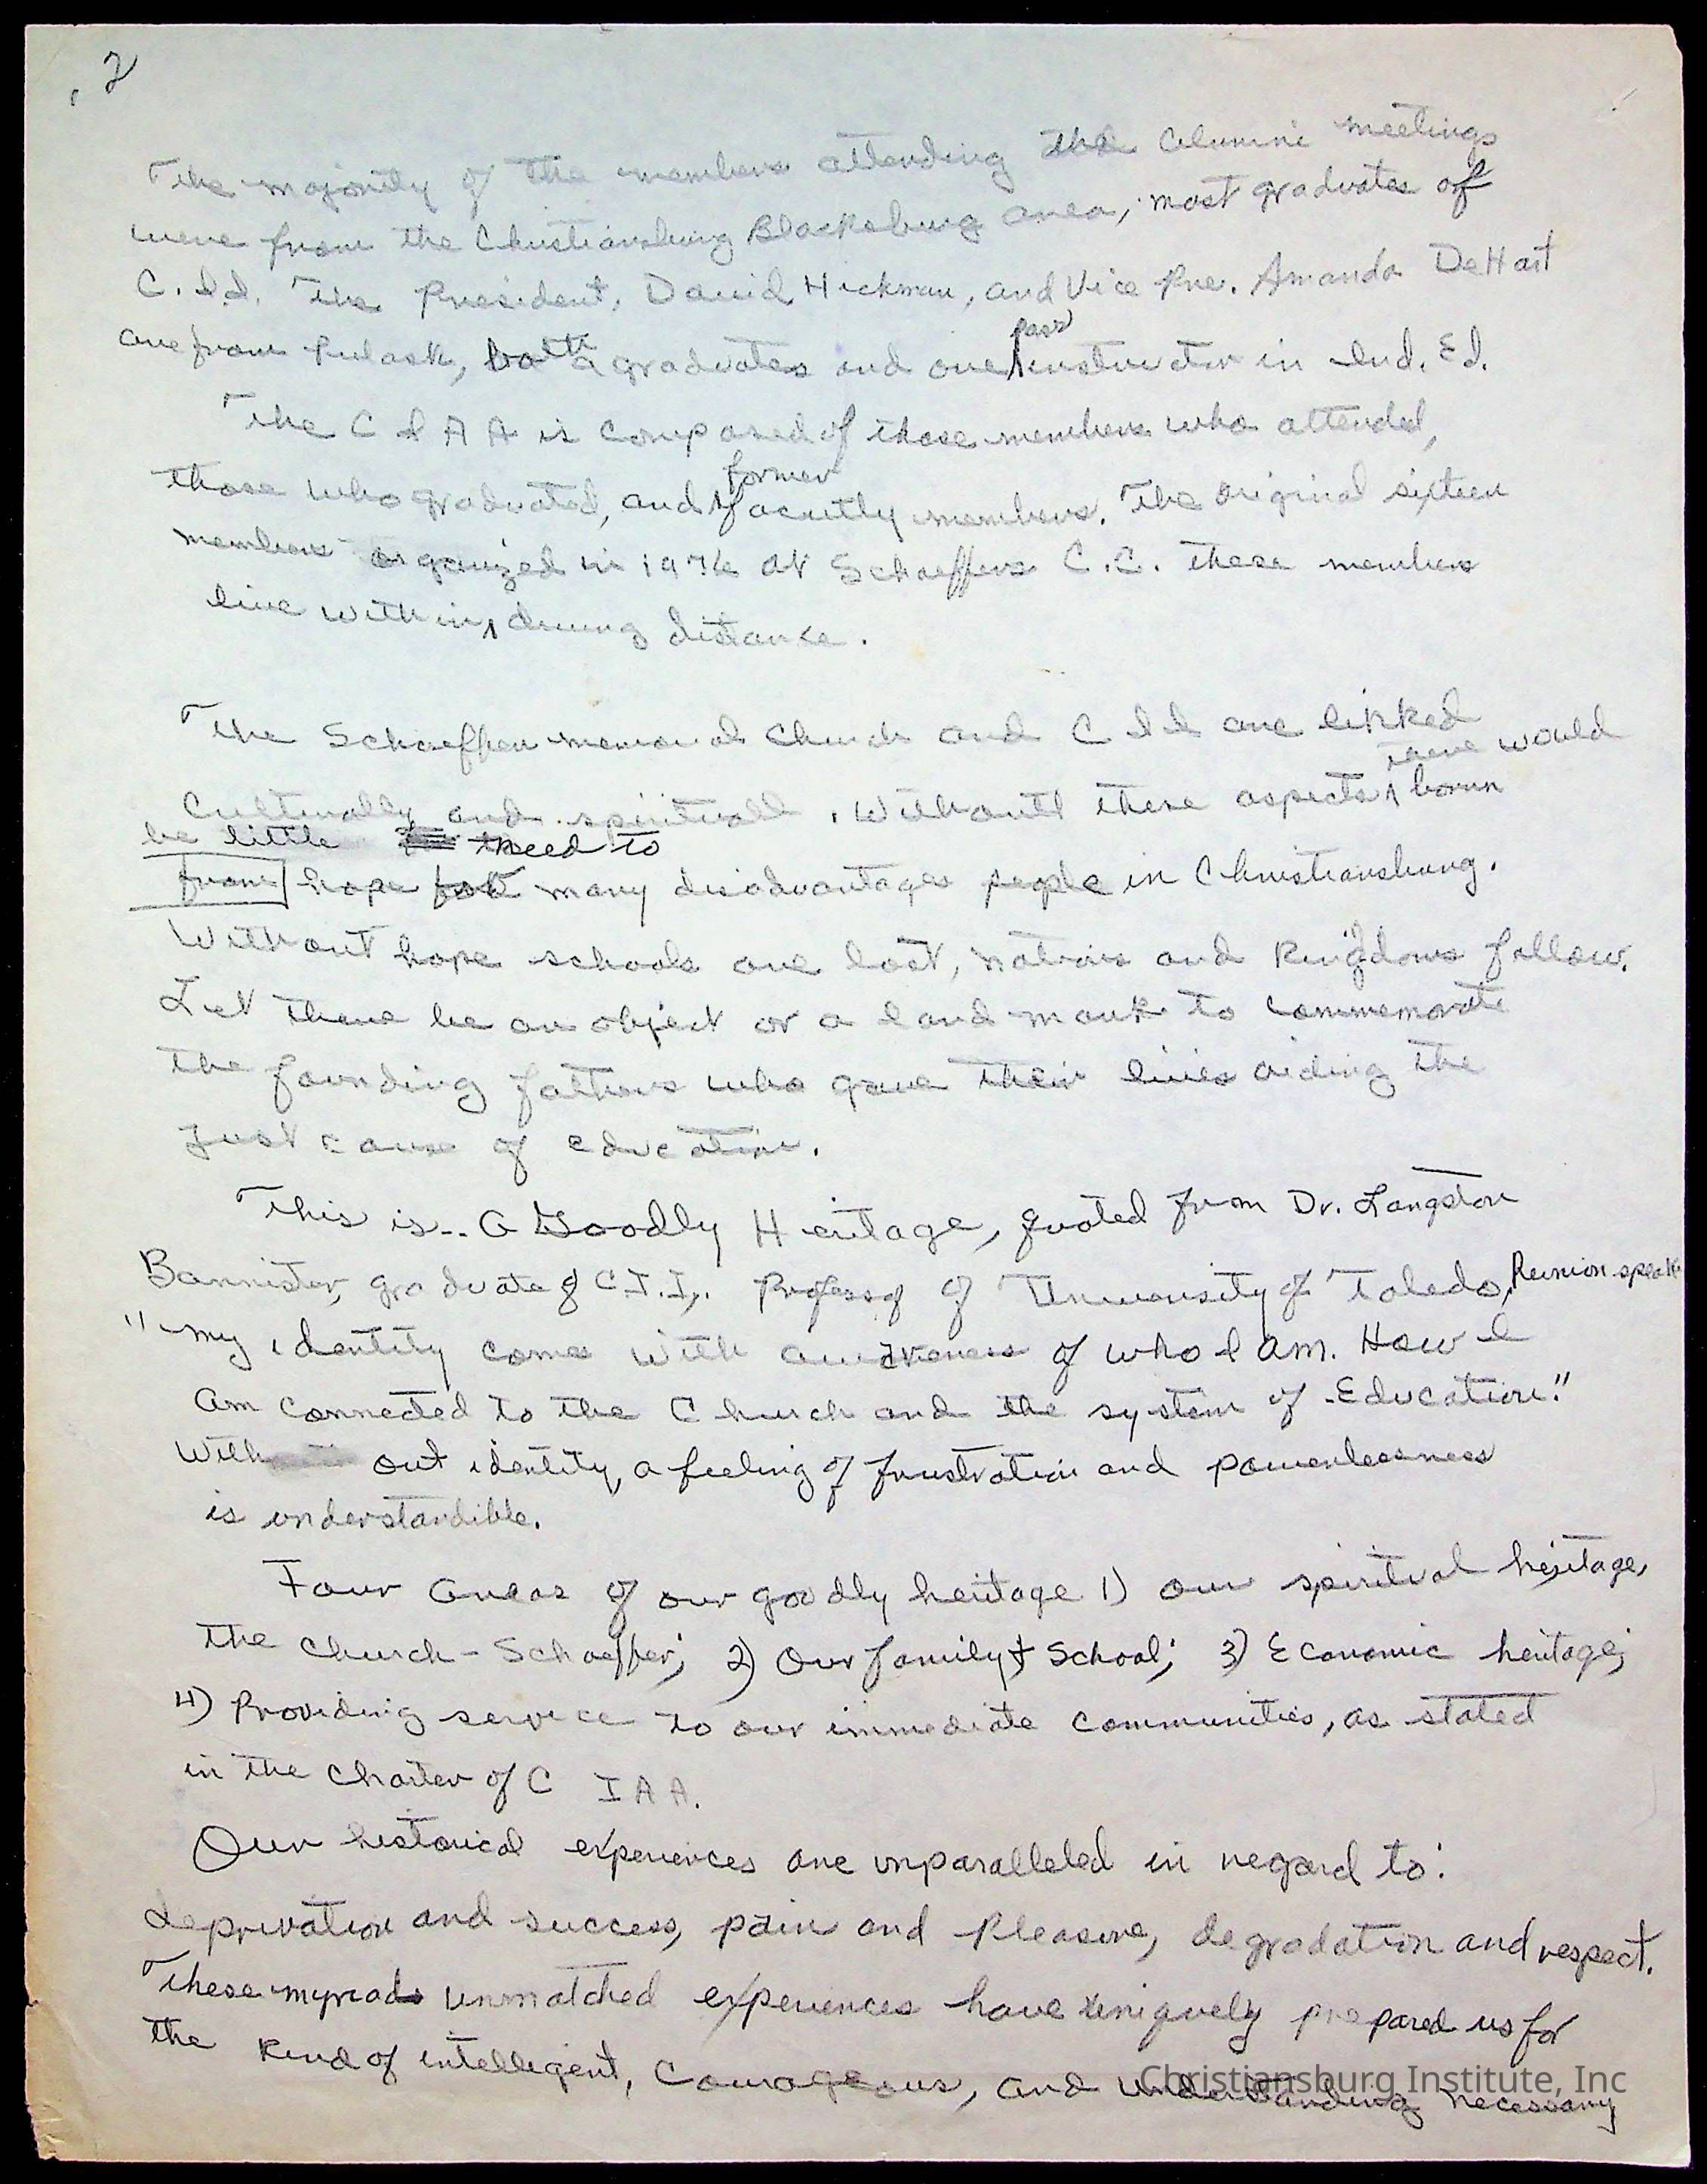 2
The majority of the members attending the Alumni meetings
were from the Christiansburg Blacksburg area, most graduates of
C.I.I. The President, David Hickman, and Vice Pre. Amanda DeHart
are from Pulask, both graduates and one instructor in Ind. Ed.
pass
The C I A A is composed of those members who attended,
those who graduated, and faculty members. The original sixteen
former
members organized in 1976 at Schaeffers C.C. these members
live within driving distance.
The Schaeffer memorial Church and C I I are linked
would
culturally and spirituall. Without these aspects
be little need to
from hope for many disadvantages people in Christiansburg.
Without hope schools are lost, nations and kingdoms follow.
Let there be an object or a land mark to commemorate
the founding fathers who gave their lives aiding the
just cause of education.
This is.. A Goodly Heritage, quoted from Dr. Langston
Bannister, graduate of C.I.I,. Professof of University of Toledo, Reunion speak
"my identity comes with awareness of who I am. How I
am connected to the Church and the system of Education."
With out identity, a feeling of frustration and powerlessness
is understandible.
Four areas of our goodly heritage 1) our spiritual heritage,
the Church - Schaeffer; 2) Our family & School; 3) Economic heritage;
4) Providing service to our immediate communities, as stated
in the charter of C IAA.
Our historical experiences are unparalleled in regard to:
deprivation and success, pain and pleasure, degradation and respect.
These myriads unmatched experiences have uniquely prepared us for
the kind of intelligent, courageous, and understanding necessary
Christiansburg Institute, Inc